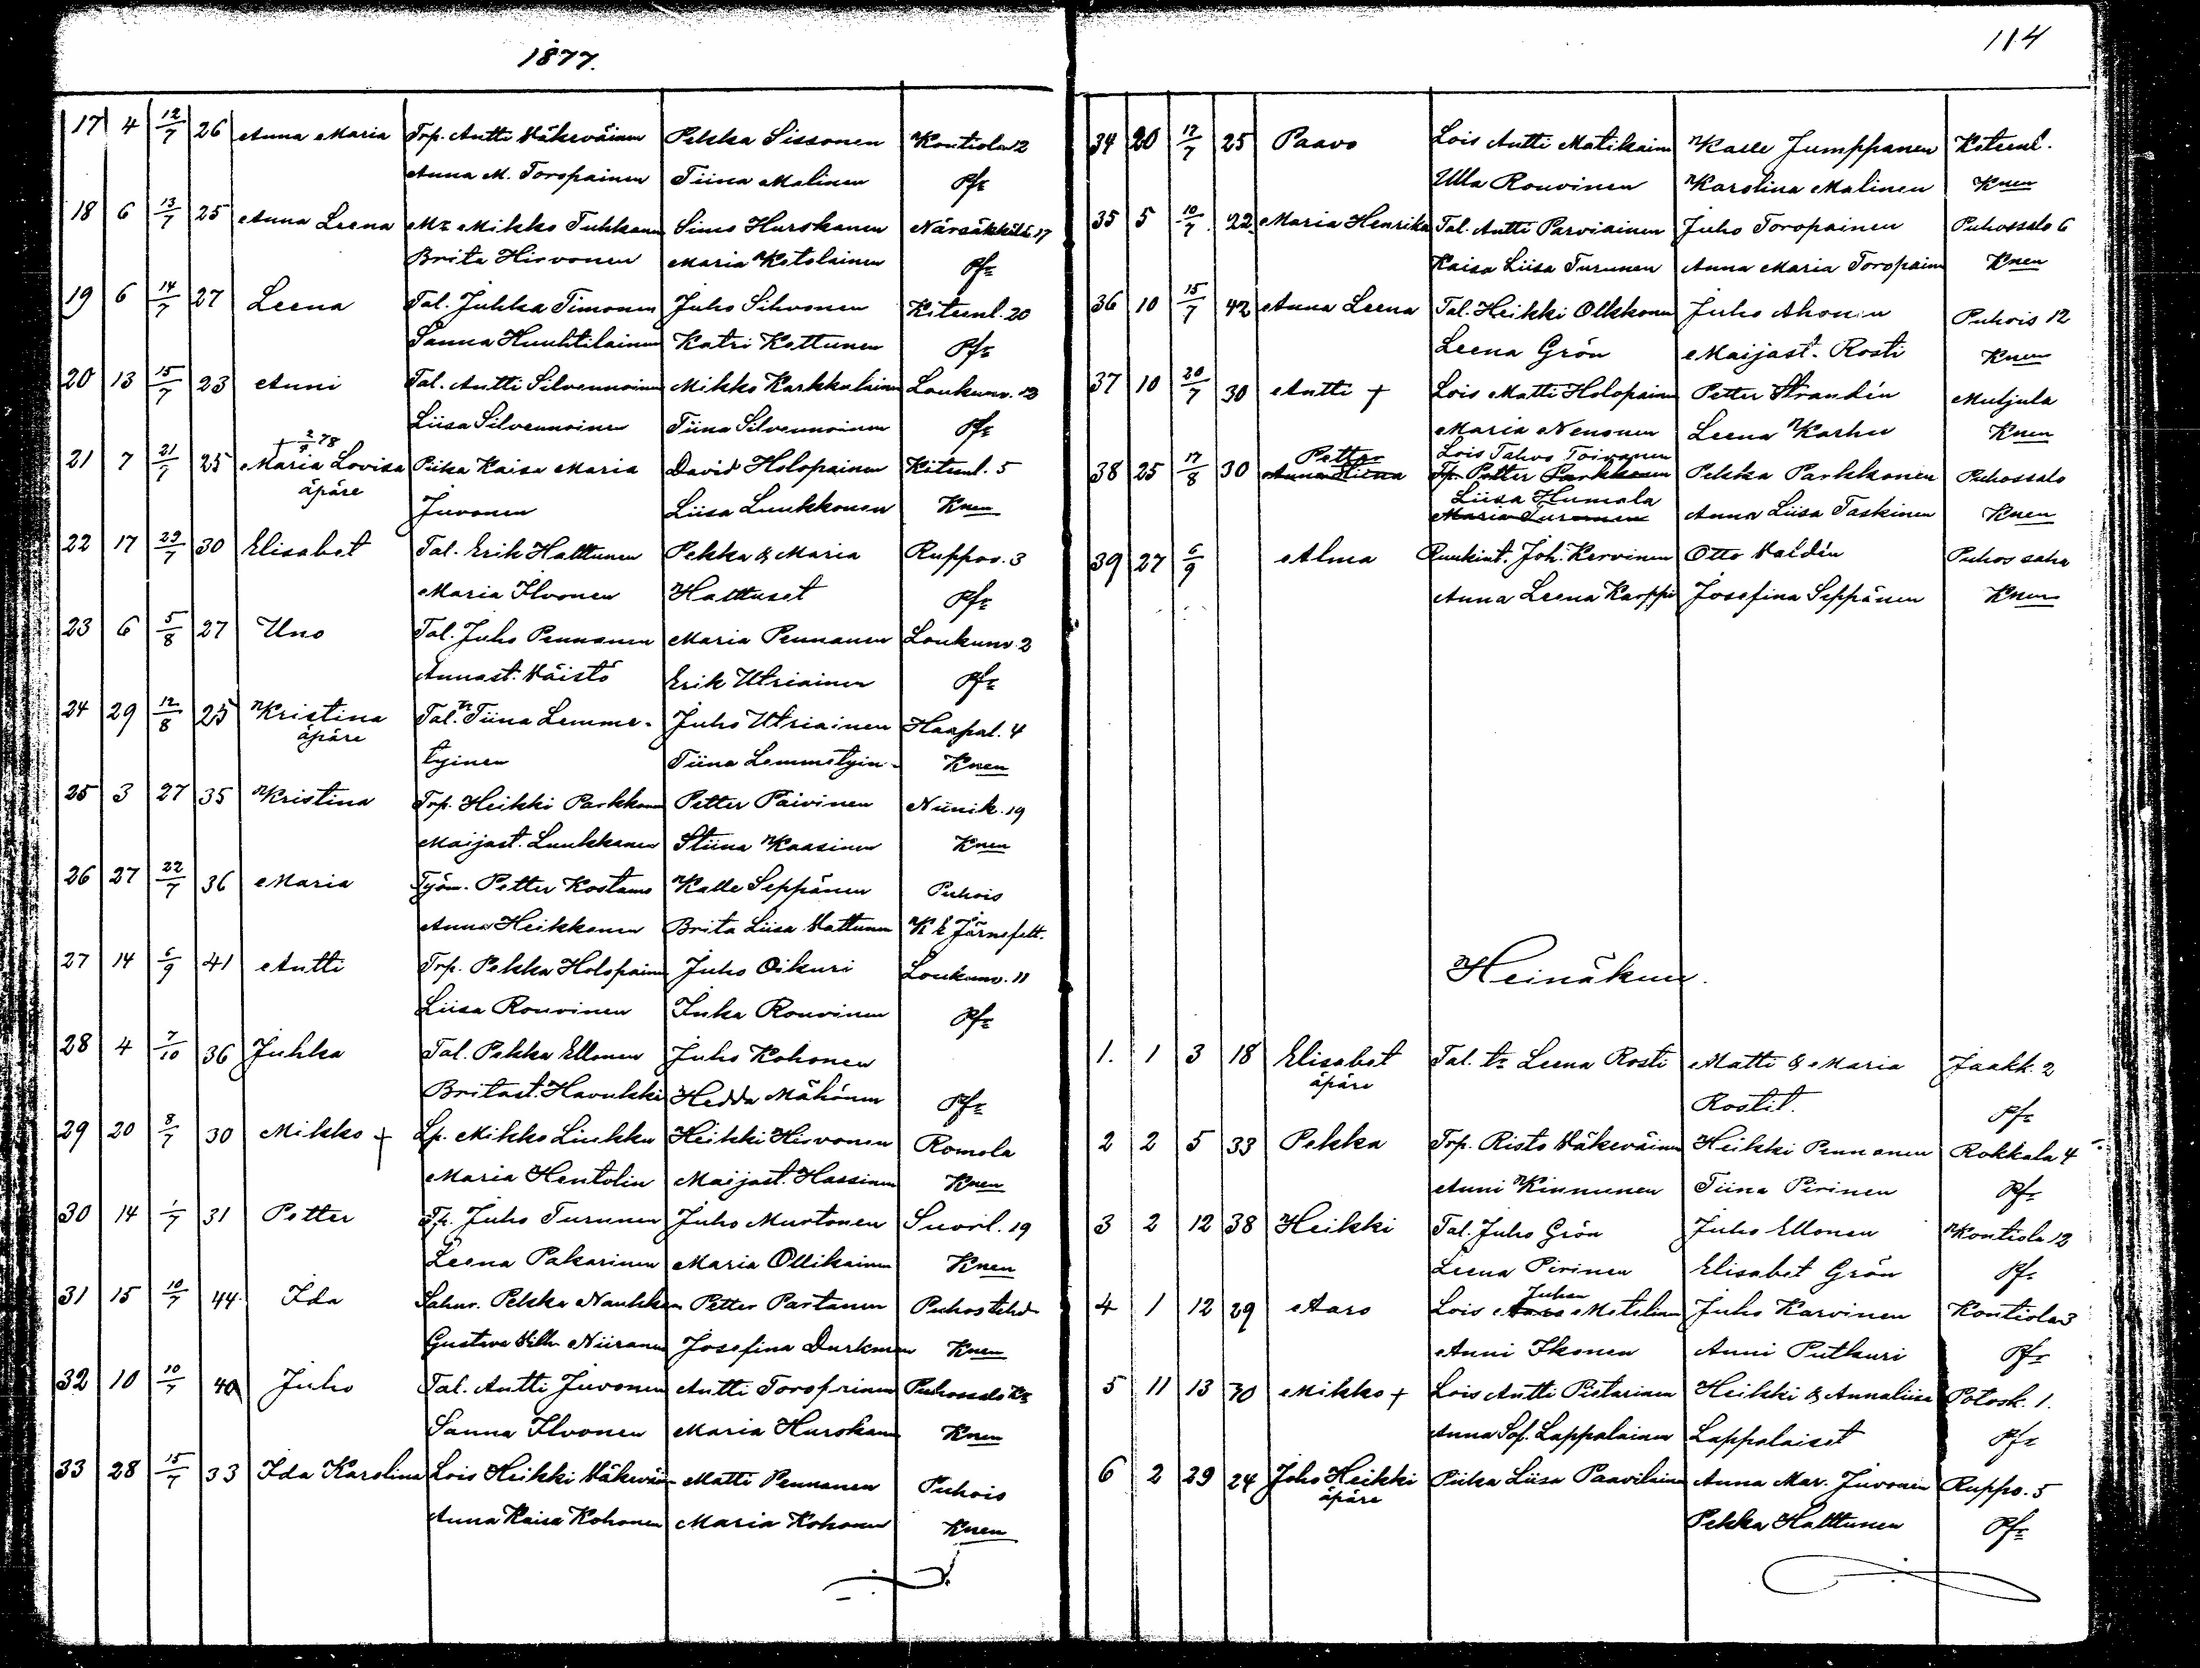 1877.
17 4 12/7 26 Anna Maria Trp. Antti Väkeväinen Pekka Sissonen Kontiola 2
Anna M. Toropainen Tiina Malinen Pfr
18 6 13/7 25 Anna Leena Mr Mikko Tuhkanen Simo Hurskanen Närsäkkälä 17
Brita Hirvonen Maria Ketolainen Pfr
19 6 14/7 27 Leena Tal. Juhka Timonen Juho Sihvonen Kiteenl. 20
Sanna Huuhtilainen Katri Kettunen Pfr
20 13 15/7 23 Anni Tal. Antti Silvennoinen Mikko Karkkulainen Loukunv. 13
Liisa Silvennoinen Tiina Silvennoinen Pfr
+ 2/9 78
21 7 21/7 25 Maria Lovisa Piika Kaisa Maria David Holopainen Kiteenl. 5
äpäre Juvonen Liisa Luukkonen Knen
22 17 29/7 30 Elisabet Tal. Erik Halttunen Pekka & Maria Ruppov. 3
Maria Ilvonen Halttuset Pfr
23 6 5/8 27 Uno Tal. Juho Pennanen Maria Pennanen Loukunv. 2
Annast. Väistö Erik Utriainen Pfr
24 29 12/8 25 Kristina Tal. Tiina Lemme- Juho Utriainen Haapal. 4
äpäre tyinen Tiina Lemmetyin- Knen
25 3 27 35 Kristina Trp. Heikki Parkkonen Petter Päivinen Niinik. 19
Maijast. Luukkanen Stiina Kaasinen Knen
26 27 22/7 36 Maria Työm. Petter Kostamo Kalle Seppänen Puhois
Anna Heikkonen Brita Liisa Vattunen K E Järnefelt.
27 14 6/9 41 Antti Trp. Pekka Holopainen Juho Oikuri Loukunv. 11
Liisa Rouvinen Inka Rouvinen Pfr
28 4 7/10 36 Juhka Tal. Pekka Ellonen Juho Kohonen
Britast. Havukki Hedda Mähönen Pfr
29 20 8/7 30 Mikko + Lp. Mikko Liukku Heikki Hirvonen Romola
Maria Hentolin Maijast. Hassinen Knen
30 14 1/7 31 Petter Tp. Juho Turunen Juho Murtonen Suorl. 19
Leena Pakarinen Maria Ollikainen Knen
31 15 10/7 44 Ida Sahur. Pekka Nauhkanen Petter Partanen Puhos tehd
Gustava Vilh. Niiranen Josefina Durkman Knen
32 10 10/7 40 Juho Tal. Antti Juvonen Antti Toroprinen Puhossalo
Sanna Ilvonen Maria Hurskanen Knen
33 28 15/7 33 Ida Karolina Lois Heikki Väkeväinen Matti Pennanen Puhois
Anna Kaisa Kohonen Maria Kohonen Knen
114
34 20 17/7 25 Paavo Lois Antti Matikainen Kalle Jumppanen Kiteenl.
Ulla Rouvinen Karolina Malinen Knen
35 5 10/7 22 Maria Henrika Tal. Antti Parviainen Juho Toropainen Puhossalo 6
Kaisa Liisa Turunen Anna Maria Toropainen Knen
36 10 15/7 42 Anna Leena Tal. Heikki Olkkonen Juho Ahonen Puhois 12
Leena Grön Maijast. Rosti Knen
37 10 20/7 30 Antti + Lois Matti Holopainen Petter Strandén Mutjula
Maria Nenonen Leena Karhu Knen
Petter Lois Tahvo Toivanen
38 25 17/8 30 Anna Hiena Tp. Petter Parkkonen Pekka Parkkonen Puhossalo
Liisa Humala
Maria Turunen Anna Liisa Taskinen Knen
39 27 6/9 Alma Ruukint. Joh. Kervinen Otto Valdén Puhos saha
Anna Leena Karppi Josefina Seppänen Knen
Heinäkuu.
1. 1 3 18 Elisabet Tal. tr Leena Rosti Matti & Maria Jaakk. 2
äpäre Rostit. Pfr
2 2 5 33 Pekka Trp. Risto Väkeväinen Heikki Pennanen Rokkala 4
Anni Kinnunen Tiina Pirinen Pfr
3 2 12 38 Heikki Tal. Juho Grön Juho Ellonen Kontiola 12
Leena Pirinen Elisabet Grön Pfr
Juhan
4 1 12 29 Aaro Lois Aaro Metelinen Juho Karvinen Kontiola 3
Anni Ikonen Anni Putkuri Pfr
5 11 13 30 Mikko + Lois Antti Pietarinen Heikki & Annaliisa Potosk. 1.
Anna Sof. Lappalainen Lappalaiset Pfr
6 2 29 24 Joho Heikki Piika Liisa Paavilainen Anna Mar. Juvonen Ruppo. 5
äpäre Pekka Halttunen Pfr